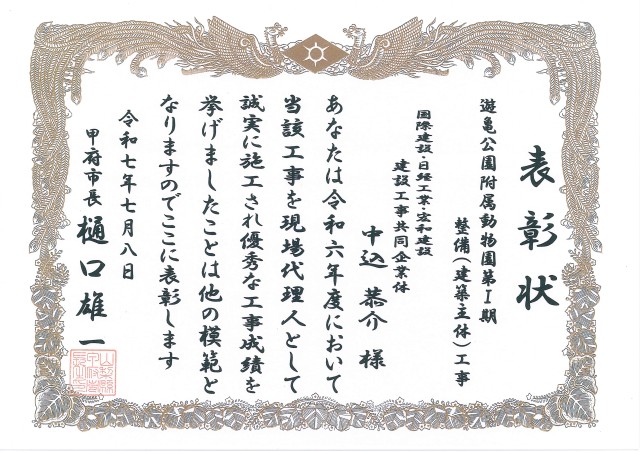 表彰状
遊亀公園附属動物園第Ⅰ期
整備(建築主体)工事
国際建設・日経工業・宏和建設
建設工事共同企業体
中込 恭介 様
あなたは令和六年度において
当該工事を現場代理人として
誠実に施工され優秀な工事成績を
挙げましたことは他の模範と
なりますのでここに表彰します
令和七年七月八日
甲府市長 樋口雄一